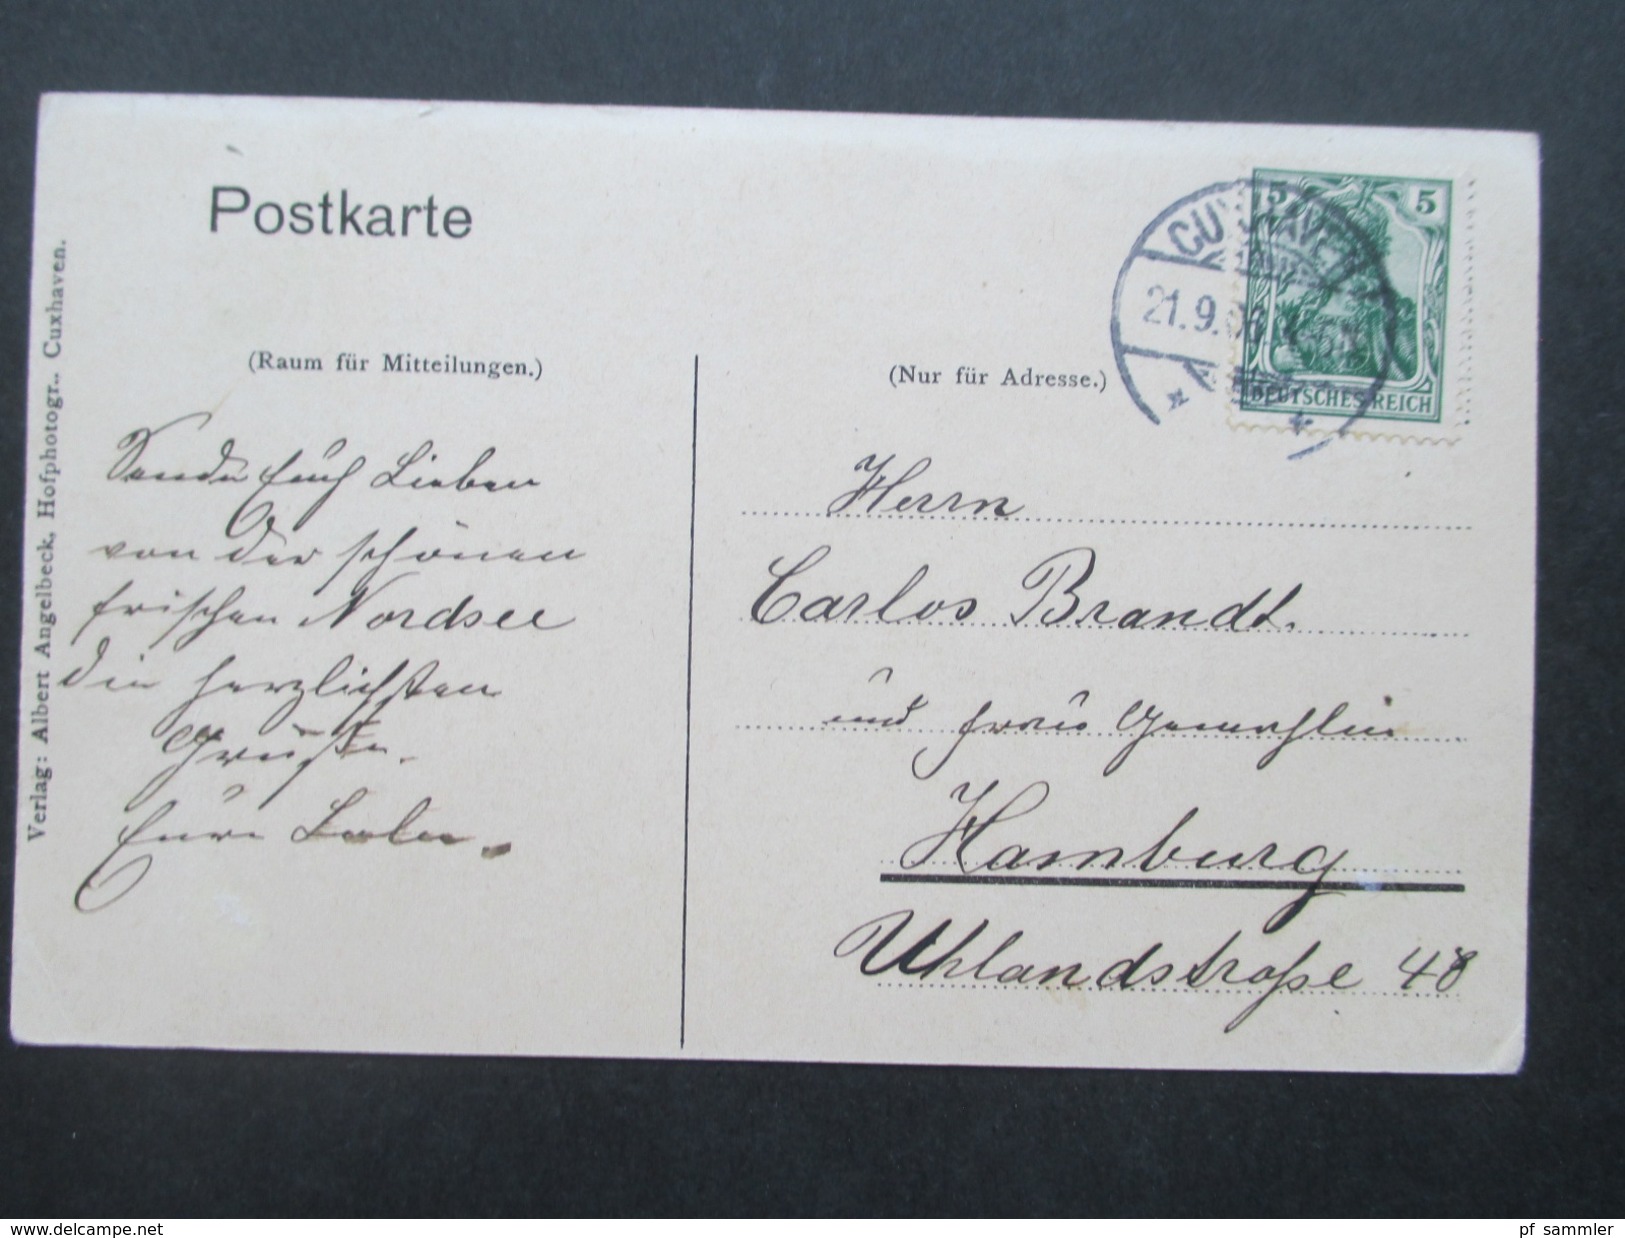 Postkarte
(Raum für Mitteilungen.)
Sende Euch Lieben
von der schönen
frischen Nordsee
die herzlichsten
Grüße.
Eure
Verlag: Albert Angelbeck, Hofphotogr., Cuxhaven.
5 5
DEUTSCHES REICH
CUXHAVEN
21.9.06
(Nur für Adresse.)
Herrn
Carlos Brandt.
und Frau Gemahlin
Hamburg
Uhlandstraße 48
www.delcampe.net
pf sammler